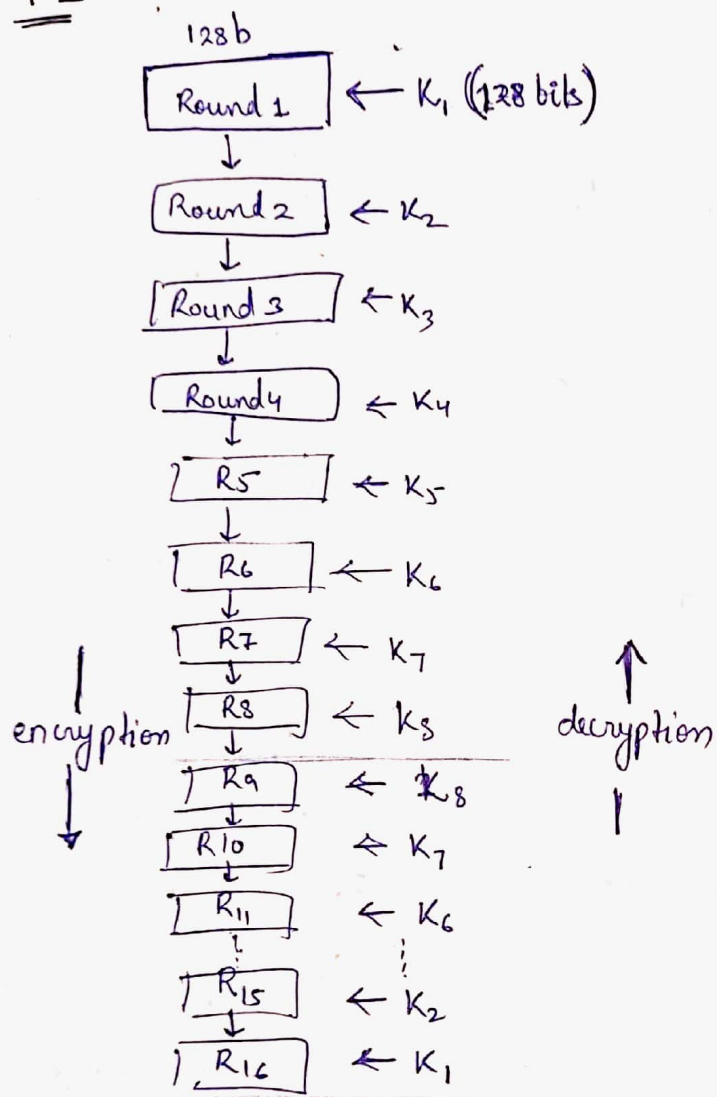 128b
Round 1 ← K₁ (128 bits)
Round 2 ← K₂
Round 3 ← K₃
Round4 ← K₄
R5 ← K₅
R6 ← K₆
R7 ← K₇
encryption R8 ← K₈ decryption
R9 ← K₈
R10 ← K₇
R₁₁ ← K₆
R₁₅ ← K₂
R₁₆ ← K₁